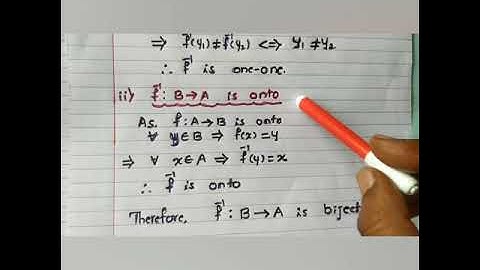 ⇒ f⁻¹(y₁) ≠ f⁻¹(y₂) <=> y₁ ≠ y₂
∴ f⁻¹ is one-one.
ii) f⁻¹ : B→A is onto
As. f : A→B is onto
∀ y∈B ⇒ f(x)=y
⇒ ∀ x∈A ⇒ f⁻¹(y)=x
∴ f⁻¹ is onto
Therefore, f⁻¹ : B→A is biject